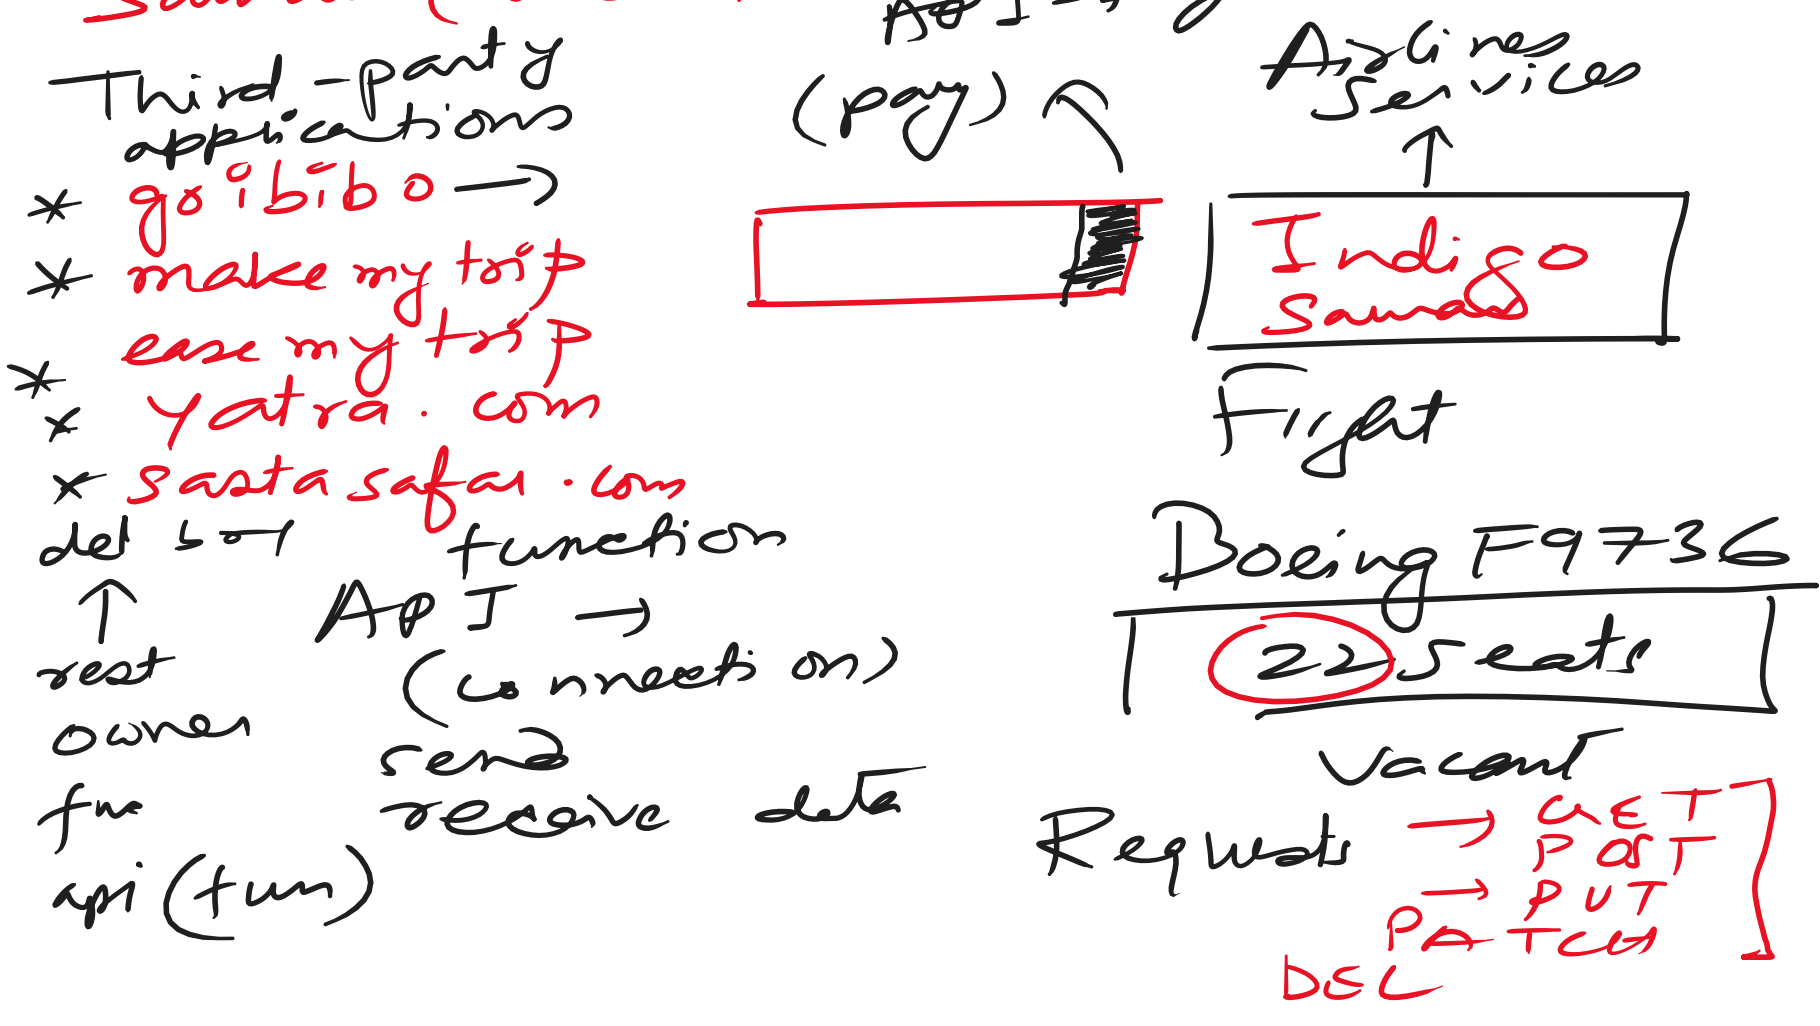 Third-party
applications
* goibibo →
* make my trip
* ease my trip
* yatra.com
* sastasafar.com
del boy
↑
rest
owner
api (fun)
function
API →
(connection)
send
receive data
API
(pay)
Airlines
services
↑
Indigo
Flight
Boeing F9736
22 seats
vacant
Requests → GET
POST
→ PUT
PATCH
DEL